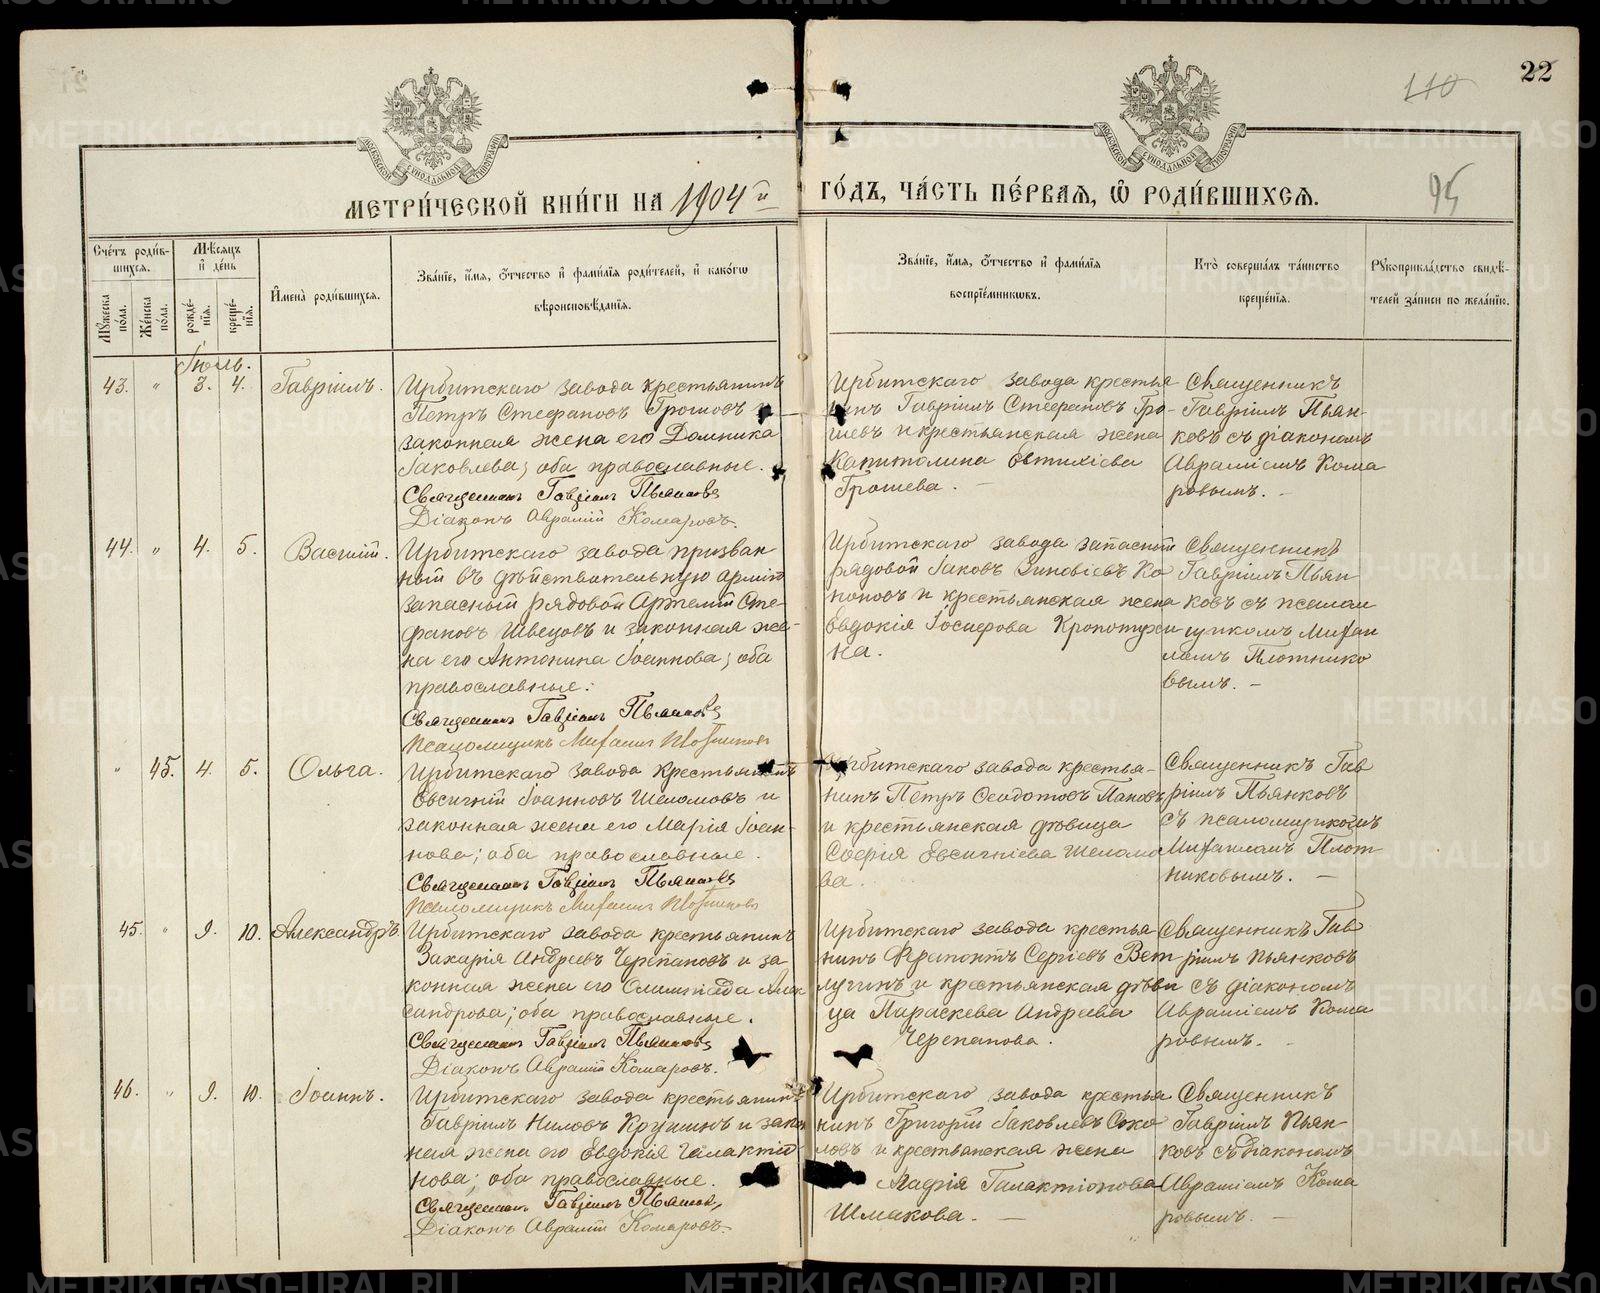 22
110
95
МЕТРИ́ЧЕСКОЙ КНИ́ГИ НА 1904й ГО́ДЪ, ЧА́СТЬ ПЕ́РВАѦ, Ѿ РОДИ́ВШИХСѦ.
Счетъ роди́вшихся.
Мꙋжеска по́ла.
Же́нска по́ла.
Мѣсяцъ и де́нь
рожде́нїя.
креще́нїя.
И҆мена̀ роди́вшихся.
Зва́нїе, и҆́мя, ѻ҆́тчество и҆ фами́лїя роди́телей, и҆ како́гѡ
вѣроисповѣ́данїя.
Зва́нїе, и҆́мя, ѻ҆́тчество и҆ фами́лїя
воспрїе́мникѡвъ.
Кто̀ соверша́лъ та́инство
креще́нїя.
Рꙋкоприкла́дство свидѣ́-
телей за́писи по жела́нїю.
Іюль.
43. " 3. 4. Гавріилъ.
Ирбитскаго завода крестьянинъ
Петръ Стефановъ Грошевъ и
законная жена его Домника
Іаковлева; оба православные.
Священникъ Гавріилъ Пьянковъ
Діаконъ Аврамій Комаровъ.
Ирбитскаго завода крестья
нинъ Гавріилъ Стефановъ Гро-
шевъ и крестьянская жена
Капитолина Евтихіева
Грошева. —
Священникъ
Гавріилъ Пьян-
ковъ съ діакономъ
Авраміемъ Кома
ровымъ. —
44. " 4. 5. Василій.
Ирбитскаго завода призван
ный въ дѣйствительную армію
запасный рядовой Артемій Сте-
фановъ Швецовъ и законная же-
на его Антонина Іоаннова; оба
православные.
Священникъ Гавріилъ Пьянковъ
Псаломщикъ Михаилъ Плотниковъ
Ирбитскаго завода запасный
рядовой Іаковъ Зиновіевъ Ко
ноновъ и крестьянская жена
Евдокія Іосифова Кропотухи
на.
Священникъ
Гавріилъ Пьян
ковъ съ псалом
щикомъ Михаи
ломъ Плотнико
вымъ. —
" 45. 4. 5. Ольга.
Ирбитскаго завода крестьянинъ
Евсигній Іоанновъ Шеломовъ и
законная жена его Марія Іоан-
нова; оба православные.
Священникъ Гавріилъ Пьянковъ
Псаломщикъ Михаилъ Плотниковъ
Ирбитскаго завода крестья-
нинъ Петръ Ѳеодотовъ Пановъ
и крестьянская дѣвица
Софія Евсигніева Шеломо
ва.
Священникъ Гав
ріилъ Пьянковъ
съ псаломщикомъ
Михаиломъ Плот
никовымъ. —
45. " 9. 10. Александръ.
Ирбитскаго завода крестьянинъ
Захарія Андреевъ Черепановъ и за
конная жена его Олимпіада Алек
сандрова; оба православные.
Священникъ Гавріилъ Пьянковъ
Діаконъ Аврамій Комаровъ.
Ирбитскаго завода крестья-
нинъ Ферапонтъ Сергіевъ Вет
лугинъ и крестьянская дѣви
ца Параскева Андреева
Черепанова.
Священникъ Гав
ріилъ Пьянковъ
съ діакономъ
Авраміемъ Кома
ровымъ. —
46. " 9. 10. Іоаннъ.
Ирбитскаго завода крестьянинъ
Гавріилъ Ниловъ и закон
ная жена его Евдокія Галактіо
нова; оба православные.
Священникъ Гавріилъ Пьянковъ
Діаконъ Аврамій Комаровъ.
Ирбитскаго завода крестья
нинъ Григорій Іаковлевъ Соко
ловъ и крестьянская жена
Марія Галактіонова
Шмакова. —
Священникъ
Гавріилъ Пьян-
ковъ съ діакономъ
Авраміемъ Кома
ровымъ. —
METRIKI.GASO-URAL.RU